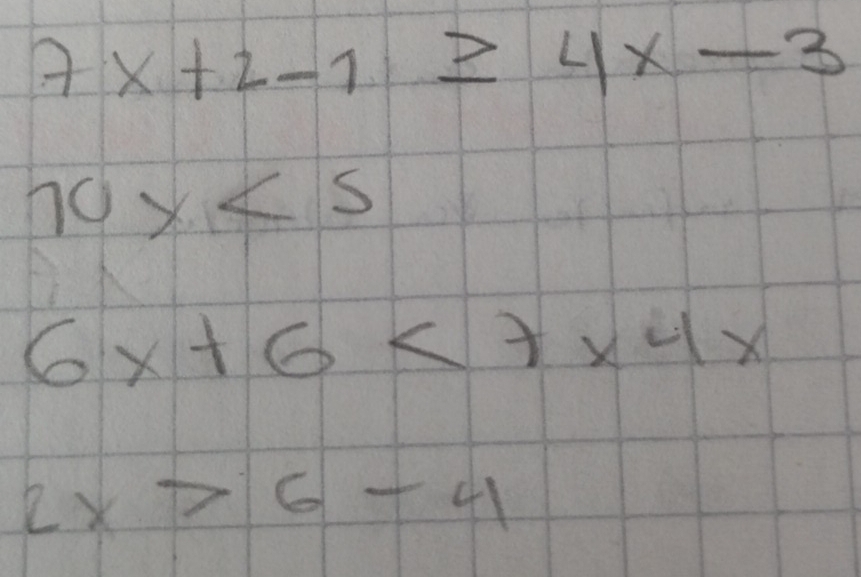 7x+2-1 ≥ 4x-3
10x < 5
6x+6 < 7x4x
2x > 6-4